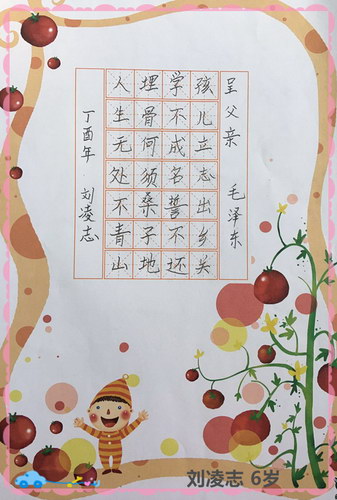 呈父亲 毛泽东
孩儿立志出乡关
学不成名誓不还
埋骨何须桑子地
人生无处不青山
丁酉年 刘凌志
刘凌志 6岁